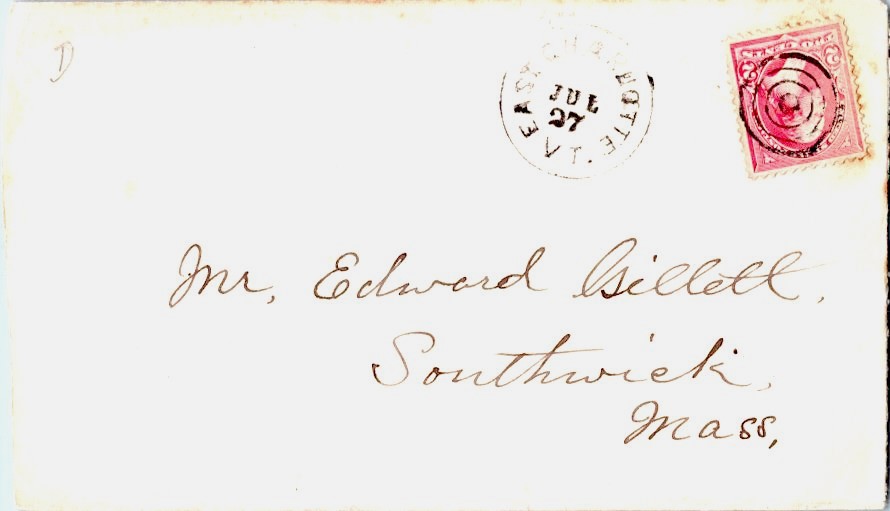 D
EAST CHARLOTTE. VT
JUL
27
2 2
Mr. Edward Gillett.
Southwick.
Mass,